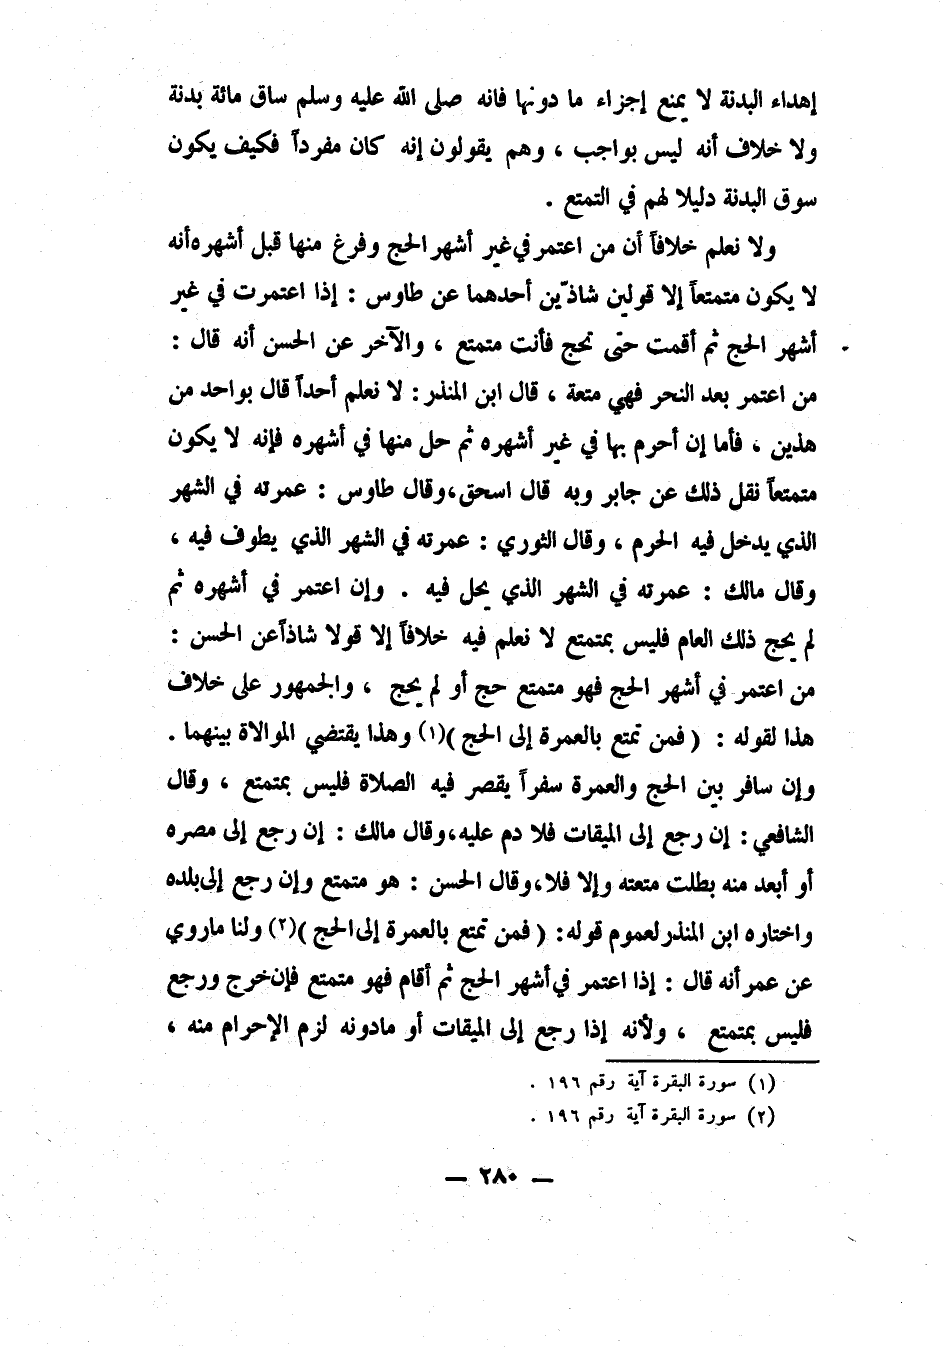 إهداء البدنة لا يمنع إجزاء ما دونها فانه صلى الله عليه وسلم ساق مائة بدنة
ولا خلاف أنه ليس بواجب ، وهم يقولون إنه كان مفرداً فكيف يكون
سوق البدنة دليلا لهم في التمتع .
ولا نعلم خلافاً أن من اعتمر في غير أشهر الحج وفرغ منها قبل أشهره أنه
لا يكون متمتعاً إلا قولين شاذّين أحدهما عن طاوس : إذا اعتمرت في غير
أشهر الحج ثم أقمت حتى تحج فأنت متمتع ، والآخر عن الحسن أنه قال :
من اعتمر بعد النحر فهي متعة ، قال ابن المنذر : لا نعلم أحداً قال بواحد من
هذين ، فأما إن أحرم بها في غير أشهره ثم حل منها في أشهره فإنه لا يكون
متمتعاً نقل ذلك عن جابر وبه قال اسحق ، وقال طاوس : عمرته في الشهر
الذي يدخل فيه الحرم ، وقال الثوري : عمرته في الشهر الذي يطوف فيه ،
وقال مالك : عمرته في الشهر الذي يحل فيه . وإن اعتمر في أشهره ثم
لم يحج ذلك العام فليس بمتمتع لا نعلم فيه خلافاً إلا قولا شاذاً عن الحسن :
من اعتمر في أشهر الحج فهو متمتع حج أو لم يحج ، والجمهور على خلاف
هذا لقوله : ( فمن تمتع بالعمرة إلى الحج )(١) وهذا يقتضي الموالاة بينهما .
وإن سافر بين الحج والعمرة سفراً يقصر فيه الصلاة فليس بمتمتع ، وقال
الشافعي : إن رجع إلى الميقات فلا دم عليه ، وقال مالك : إن رجع إلى مصره
أو أبعد منه بطلت متعته وإلا فلا ، وقال الحسن : هو متمتع وإن رجع إلى بلده
واختاره ابن المنذر لعموم قوله : ( فمن تمتع بالعمرة إلى الحج )(٢) ولنا ماروي
عن عمر أنه قال : إذا اعتمر في أشهر الحج ثم أقام فهو متمتع فإن خرج ورجع
فليس بمتمتع ، ولأنه إذا رجع إلى الميقات أو مادونه لزم الإحرام منه ،
(١) سورة البقرة آية رقم ١٩٦ .
(٢) سورة البقرة آية رقم ١٩٦ .
— ٢٨٠ —